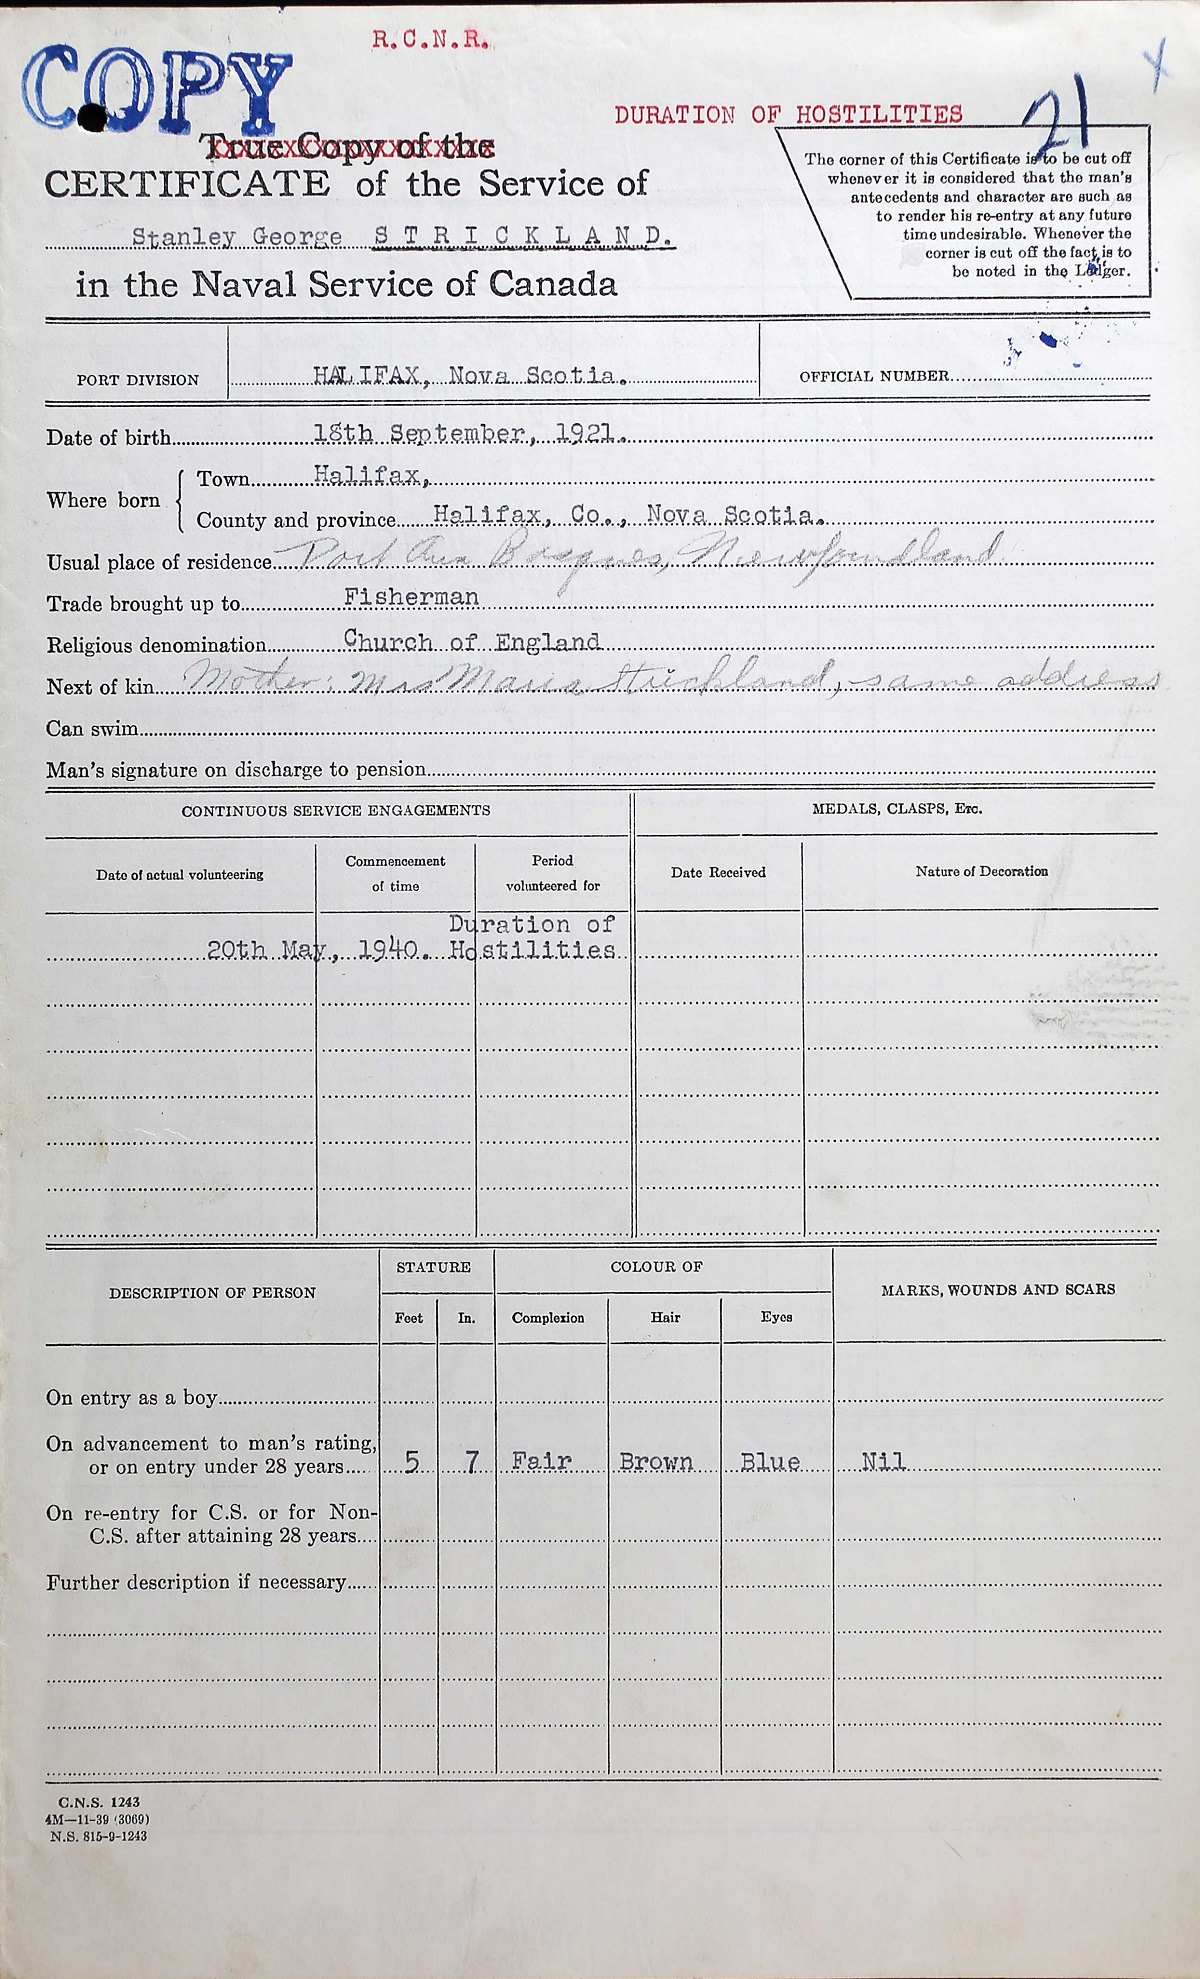 R.C.N.R.
COPY
DURATION OF HOSTILITIES
21
x
True Copy of the
CERTIFICATE of the Service of
Stanley George STRICKLAND.
in the Naval Service of Canada
The corner of this Certificate is to be cut off
whenever it is considered that the man's
antecedents and character are such as
to render his re-entry at any future
time undesirable. Whenever the
corner is cut off the fact is to
be noted in the Ledger.
PORT DIVISION HALIFAX, Nova Scotia. OFFICIAL NUMBER
Date of birth 18th September, 1921.
Where born Town Halifax,
County and province Halifax, Co., Nova Scotia.
Usual place of residence Port Aux Basques, Newfoundland
Trade brought up to Fisherman
Religious denomination Church of England
Next of kin Mother: Mrs Maria Strickland, same address
Can swim
Man's signature on discharge to pension
CONTINUOUS SERVICE ENGAGEMENTS MEDALS, CLASPS, Etc.
Date of actual volunteering Commencement of time Period volunteered for Date Received Nature of Decoration
Duration of
20th May, 1940. Hostilities
DESCRIPTION OF PERSON STATURE COLOUR OF MARKS, WOUNDS AND SCARS
Feet In. Complexion Hair Eyes
On entry as a boy
On advancement to man's rating,
or on entry under 28 years 5 7 Fair Brown Blue Nil
On re-entry for C.S. or for Non-
C.S. after attaining 28 years
Further description if necessary
C.N.S. 1243
4M—11-39 (3069)
N.S. 815-9-1243